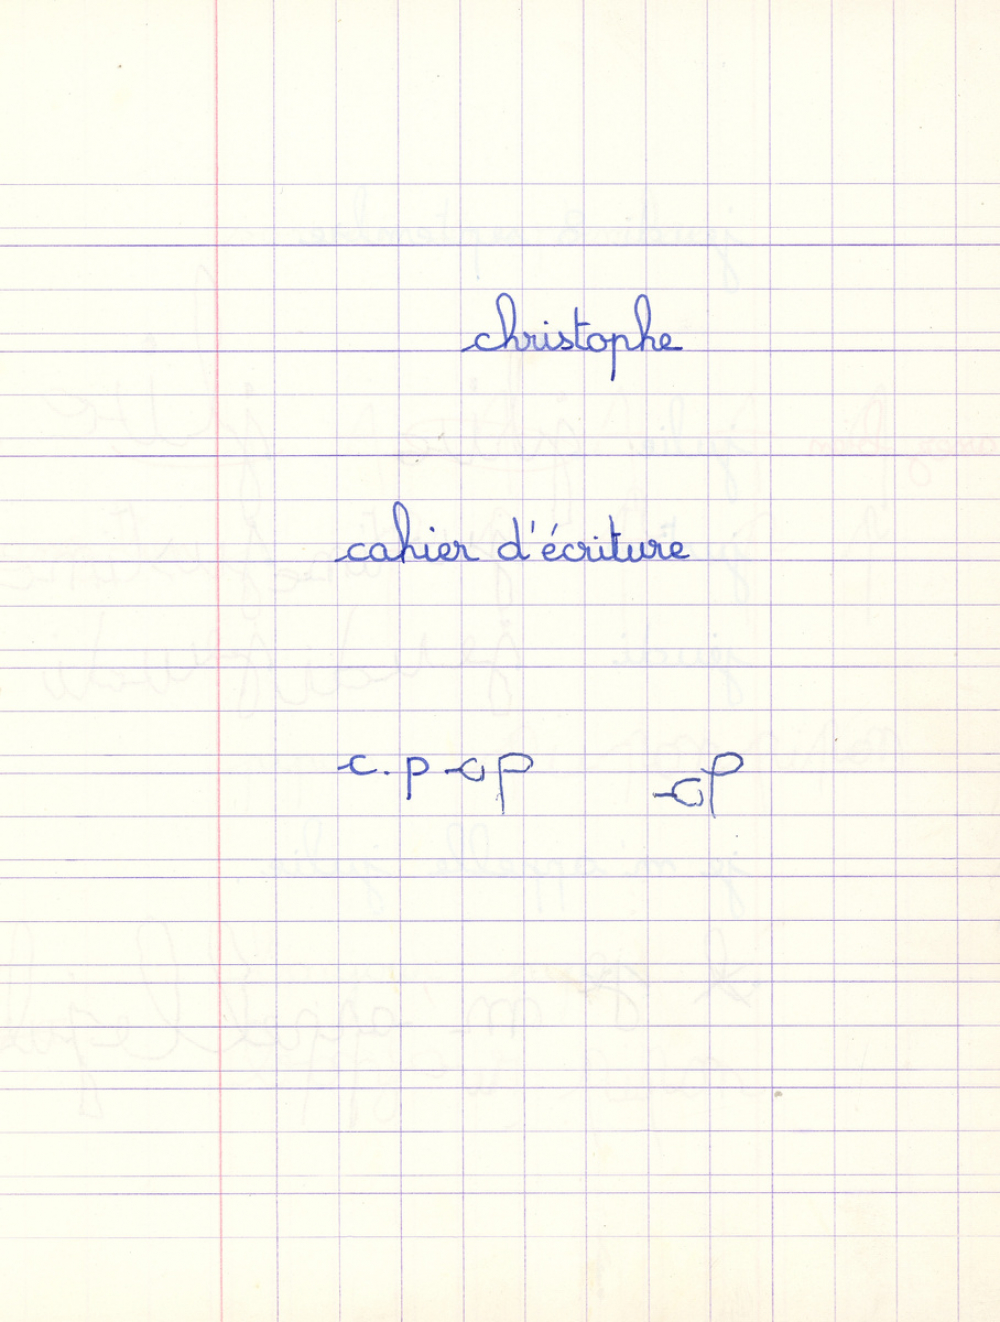 christophe
cahier d'écriture
c.p cp cp